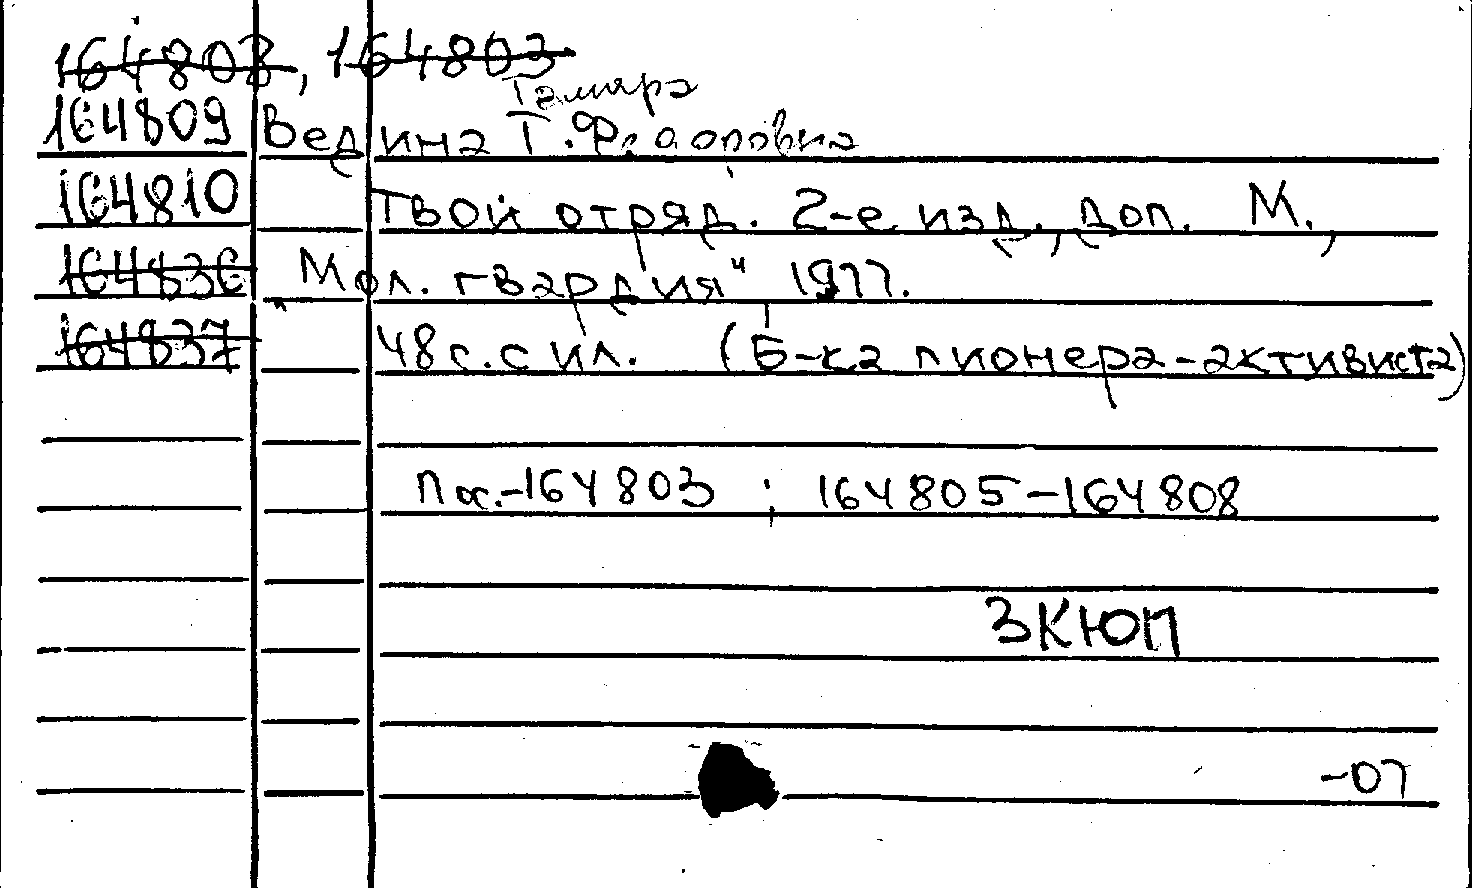 164803, 164803
Тамара
164809 Ведина Т. Федоровна
164810 Твой отряд. 2-е изд., доп. М.,
164836 „Мол. гвардия" 1977.
164837 48 с. с ил. (Б-ка пионера-активиста)
Пос.-164803 ; 164805-164808
ЗКЮП
-07